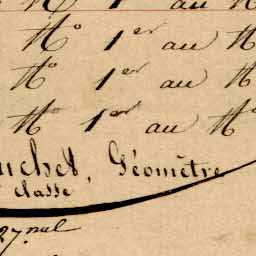 N° 1er au N
N° 1er au N
N° 1er au N
N° 1er au N°
uchet, Géomètre
classe
27 nal